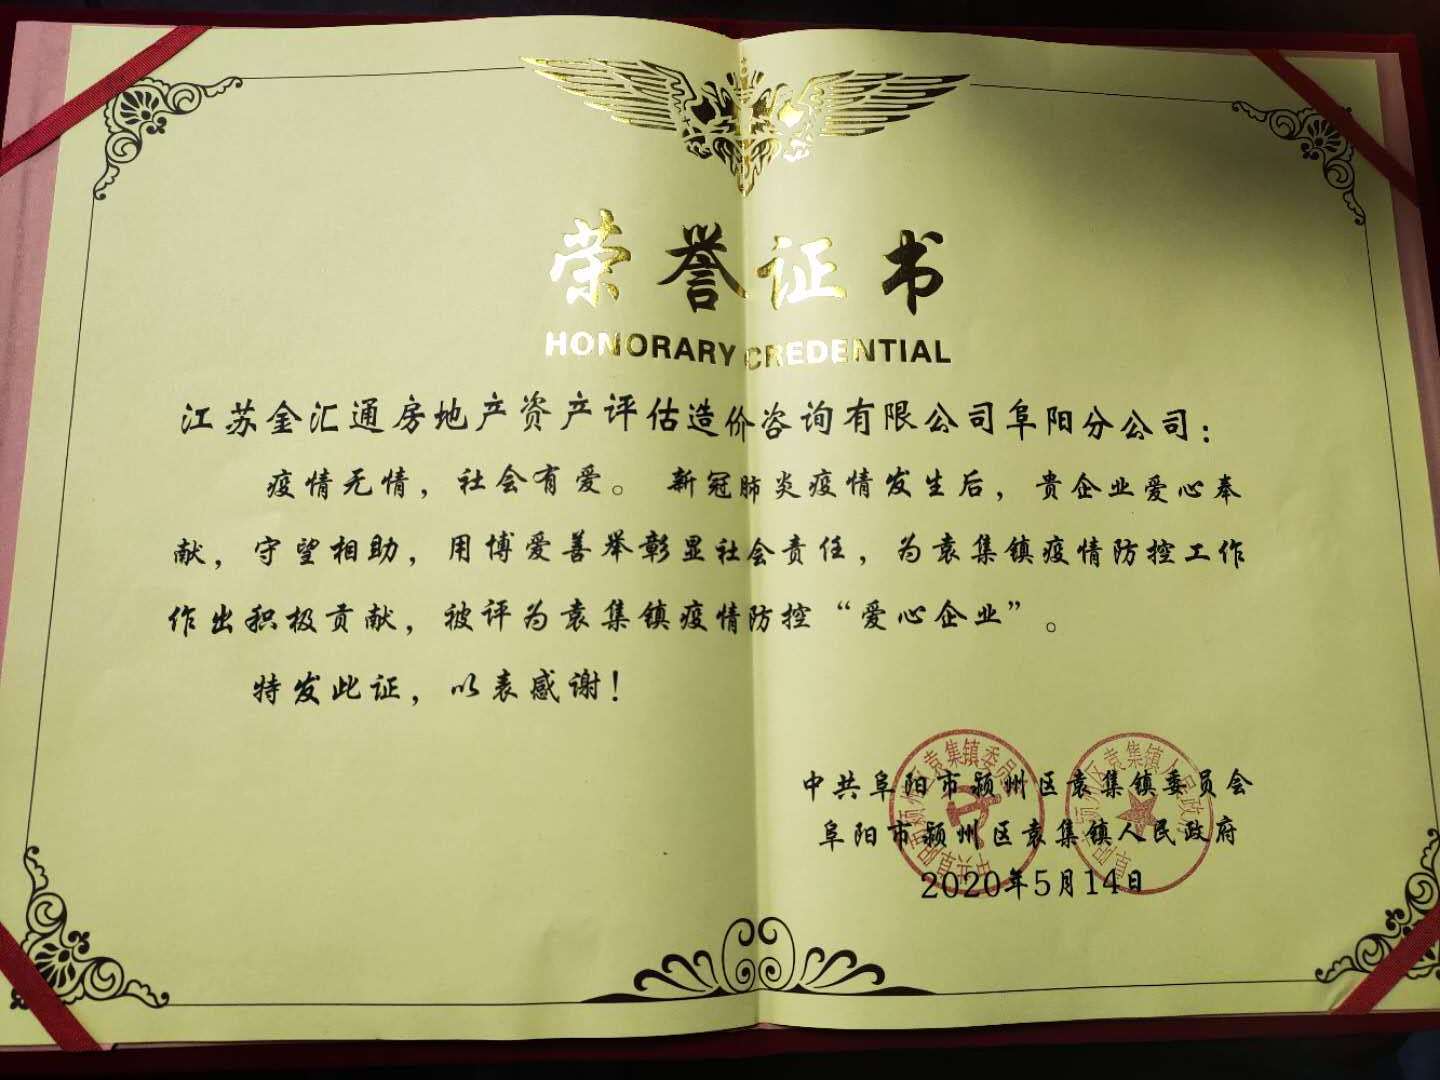 荣誉证书
HONORARY CREDENTIAL
江苏金汇通房地产资产评估造价咨询有限公司阜阳分公司：
疫情无情，社会有爱。新冠肺炎疫情发生后，贵企业爱心奉
献，守望相助，用博爱善举彰显社会责任，为袁集镇疫情防控工作
作出积极贡献，被评为袁集镇疫情防控“爱心企业”。
特发此证，以表感谢！
中共阜阳市颍州区袁集镇委员会
阜阳市颍州区袁集镇人民政府
2020年5月14日
中共阜阳市颍州区袁集镇委员会
阜阳市颍州区袁集镇人民政府